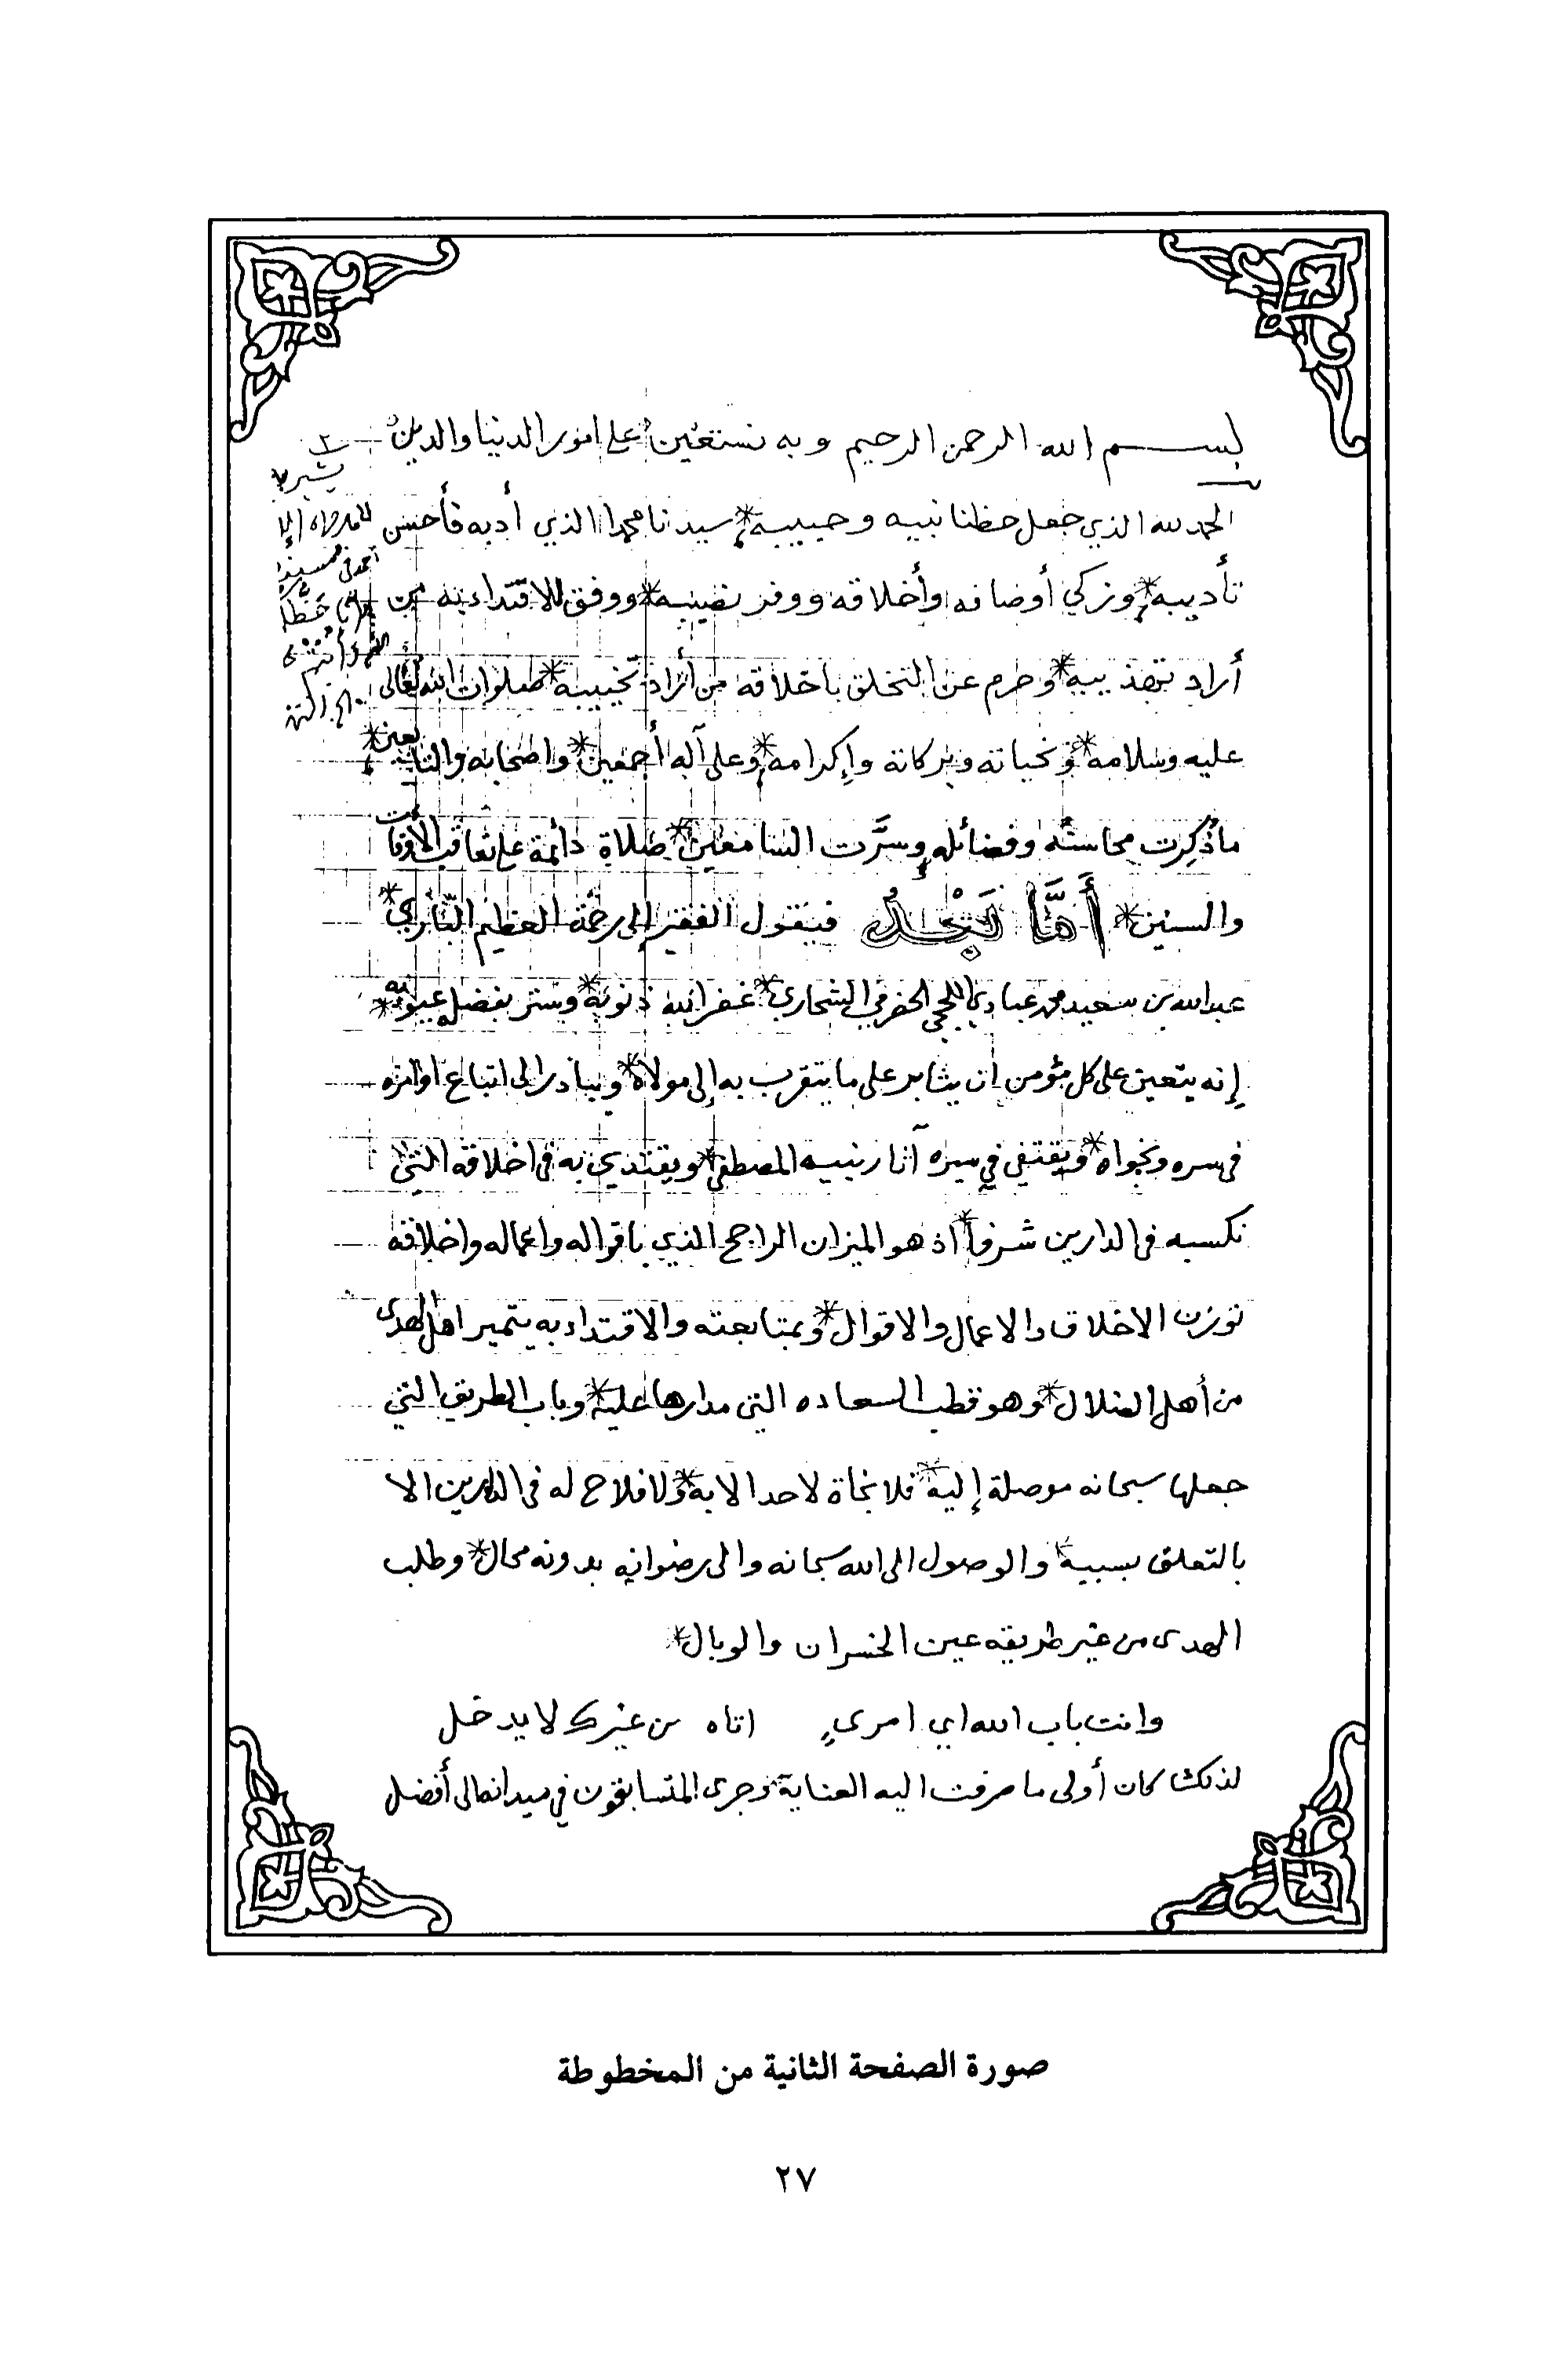 بسم الله الرحمن الرحيم وبه نستعين على امور الدنيا والدين
الحمد لله الذي جعل حظنا نبيه وحبيبه * سيدنا محمدا الذي أدبه فأحسن
تأديبه * وزكي أوصافه وأخلاقه ووفر نصيبه * ووفق للاقتداء به من
أراد تهذيبه * وحرم عن التخلق باخلاقه من أراد تخييبه * صلوات الله تعالى
عليه وسلامه * وتحياته وبركاته وإكرامه * وعلى آله أجمعين * واصحابه والتابعين *
ماذُكِرت محاسنُه وفضائله وسَرَّت السامعين * صلاة دائمة على تعاقب الأوقات
والسنين * أَمَّا بَعْدُ فيقول الفقير إلى رحمة العظيم الباري *
عبدالله بن سعيد محمد عبادي اللحجي الحضرمي الشحاري * غفر الله ذنوبه * وستر بفضله عيوبه *
إنه يتعين على كل مؤمن ان يثابر على ما يتقرب به إلى مولاه * ويبادر الى اتباع اوامره
في سره ونجواه * ويقتفي في سيره آثار نبيه المصطفى * ويقتدي به في اخلاقه التي
تكسبه في الدارين شرفا * اذ هو الميزان الراجح الذي باقواله واعماله واخلاقه
توزن الاخلاق والاعمال والاقوال * وبمتابعته والاقتداء به يتميز اهل الهدى
من أهل الضلال * وهو قطب السعاده التي مدارها عليه * وباب الطريق التي
جعلها سبحانه موصلة إليه * فلا نجاة لاحد الا به * ولا فلاح له في الدارين الا
بالتعلق بسببه * والوصول الى الله سبحانه والى رضوانه بدونه محال * وطلب
الهدى من غير طريقه عين الخسران والوبال *
وانت باب الله اي امرىءٍ اتاه من غيرك لا يدخل
لذلك كان أولى ما صرفت اليه العناية * وجرى المتسابقون في ميدانه الى أفضل
صورة الصفحة الثانية من المخطوطة
٢٧